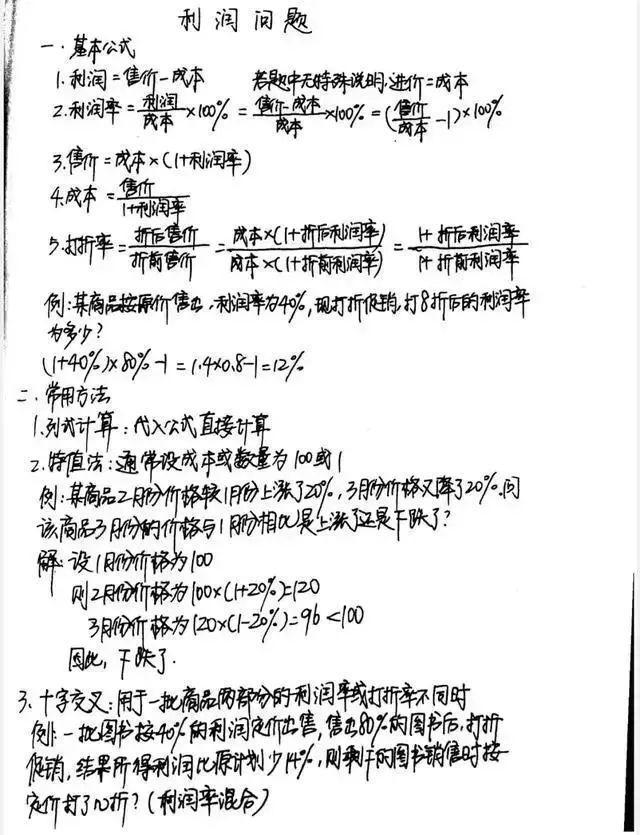 利润问题
一.基本公式
1.利润=售价-成本 若题中无特殊说明,进价=成本
2.利润率=利润/成本×100%=售价-成本/成本×100%=(售价/成本-1)×100%
3.售价=成本×(1+利润率)
4.成本=售价/1+利润率
5.打折率=折后售价/折前售价=成本×(1+折后利润率)/成本×(1+折前利润率)=1+折后利润率/1+折前利润率
例:某商品按原价售出,利润率为40%,现打折促销,打8折后的利润率
为多少?
(1+40%)×80%-1=1.4×0.8-1=12%
二.常用方法
1.列式计算:代入公式直接计算
2.特值法:通常设成本或数量为100或1
例:某商品2月份价格较1月份上涨了20%,3月份价格又降了20%.问
该商品3月份的价格与1月份相比是上涨了还是下跌了?
解:设1月份价格为100
则2月份价格为100×(1+20%)=120
3月份价格为120×(1-20%)=96<100
因此,下跌了.
3.十字交叉:用于一批商品两部分的利润率或打折率不同时
例:一批图书按40%的利润定价出售,售出80%的图书后,打折
促销,结果所得利润比原计划少14%,则剩下的图书销售时按
定价打了几折?(利润率混合)